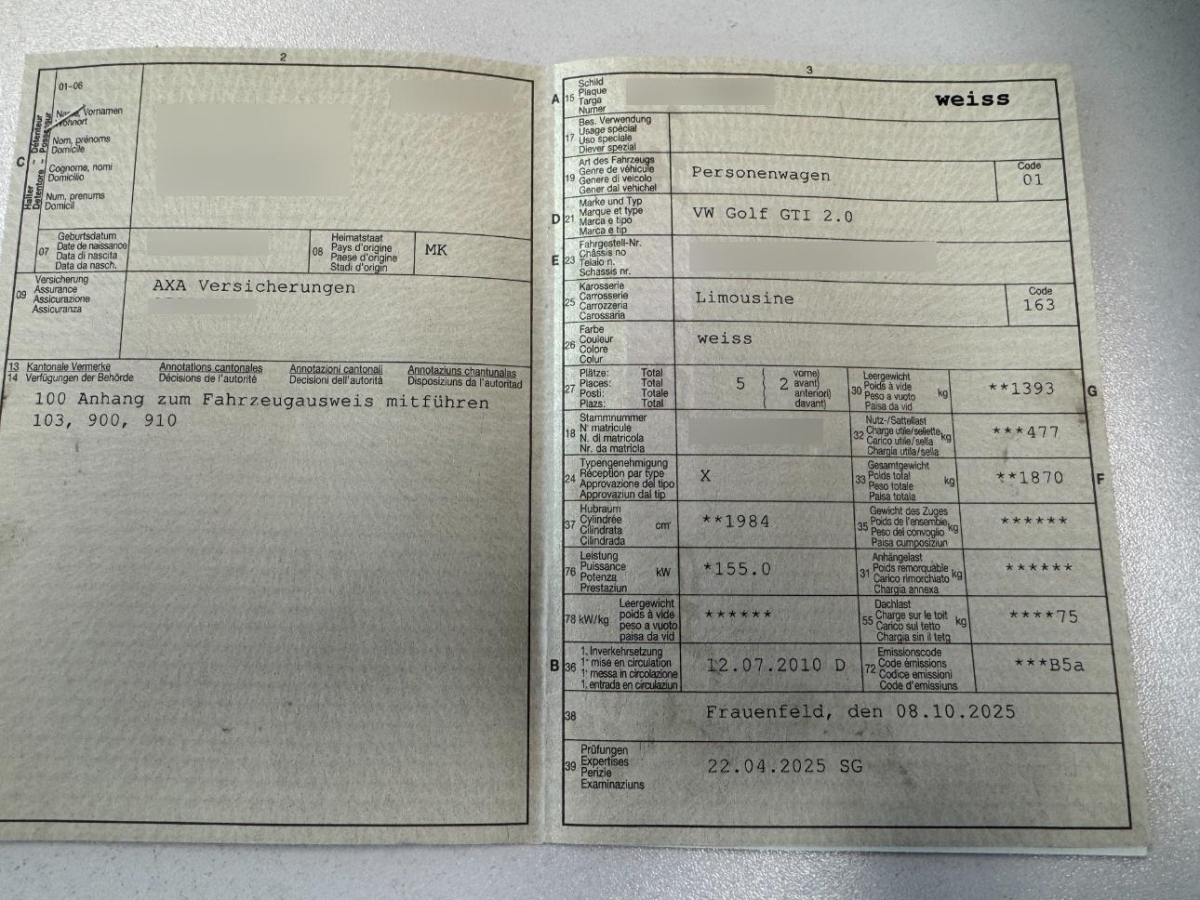 2
01-06
C
Halter Détenteur
Detentore Possessur
Name, Vornamen
Wohnort
Nom, prénoms
Domicile
Cognome, nomi
Domicilio
Num, prenums
Domicil
07
Geburtsdatum
Date de naissance
Data di nascita
Data da nasch.
08
Heimatstaat
Pays d'origine
Paese d'origine
Stadi d'origin
MK
09
Versicherung
Assurance
Assicurazione
Assicuranza
AXA Versicherungen
13 Kantonale Vermerke Annotations cantonales Annotazioni cantonali Annotaziuns chantunalas
14 Verfügungen der Behörde Décisions de l'autorité Decisioni dell'autorità Disposiziuns da l'autoritad
100 Anhang zum Fahrzeugausweis mitführen
103, 900, 910
3
A 15
Schild
Plaque
Targa
Numer
weiss
17
Bes. Verwendung
Usage spécial
Uso speciale
Diever spezial
19
Art des Fahrzeugs
Genre de véhicule
Genere di veicolo
Gener dal vehichel
Personenwagen
Code
01
D 21
Marke und Typ
Marque et type
Marca e tipo
Marca e tip
VW Golf GTI 2.0
E 23
Fahrgestell-Nr.
Châssis no
Telaio n.
Schassis nr.
25
Karosserie
Carrosserie
Carrozzeria
Carossaria
Limousine
Code
163
26
Farbe
Couleur
Colore
Colur
weiss
27
Plätze: Total
Places: Total
Posti: Totale
Plazs: Total
5 { 2
vorne)
avant)
anteriori)
davant)
30
Leergewicht
Poids à vide
Peso a vuoto
Paisa da vid
kg
**1393
G
18
Stammnummer
N° matricule
N. di matricola
Nr. da matricla
32
Nutz-/Sattellast
Charge utile/sellette
Carico utile/sella
Chargia utila/sella
kg
***477
24
Typengenehmigung
Réception par type
Approvazione del tipo
Approvaziun dal tip
X
33
Gesamtgewicht
Poids total
Peso totale
Paisa totala
kg
**1870
F
37
Hubraum
Cylindrée
Cilindrata
Cilindrada
cm³
**1984
35
Gewicht des Zuges
Poids de l'ensemble
Peso del convoglio
Paisa cumposiziun
kg
******
76
Leistung
Puissance
Potenza
Prestaziun
kW
*155.0
31
Anhängelast
Poids remorquable
Carico rimorchiato
Chargia annexa
kg
******
78 kW/kg
Leergewicht
poids à vide
peso a vuoto
paisa da vid
******
55
Dachlast
Charge sur le toit
Carico sul tetto
Chargia sin il tetg
kg
****75
B 36
1. Inverkehrsetzung
1re mise en circulation
1a messa in circolazione
1. entrada en circulaziun
12.07.2010 D
72
Emissionscode
Code émissions
Codice emissioni
Code d'emissiuns
***B5a
38
Frauenfeld, den 08.10.2025
39
Prüfungen
Expertises
Perizie
Examinaziuns
22.04.2025 SG